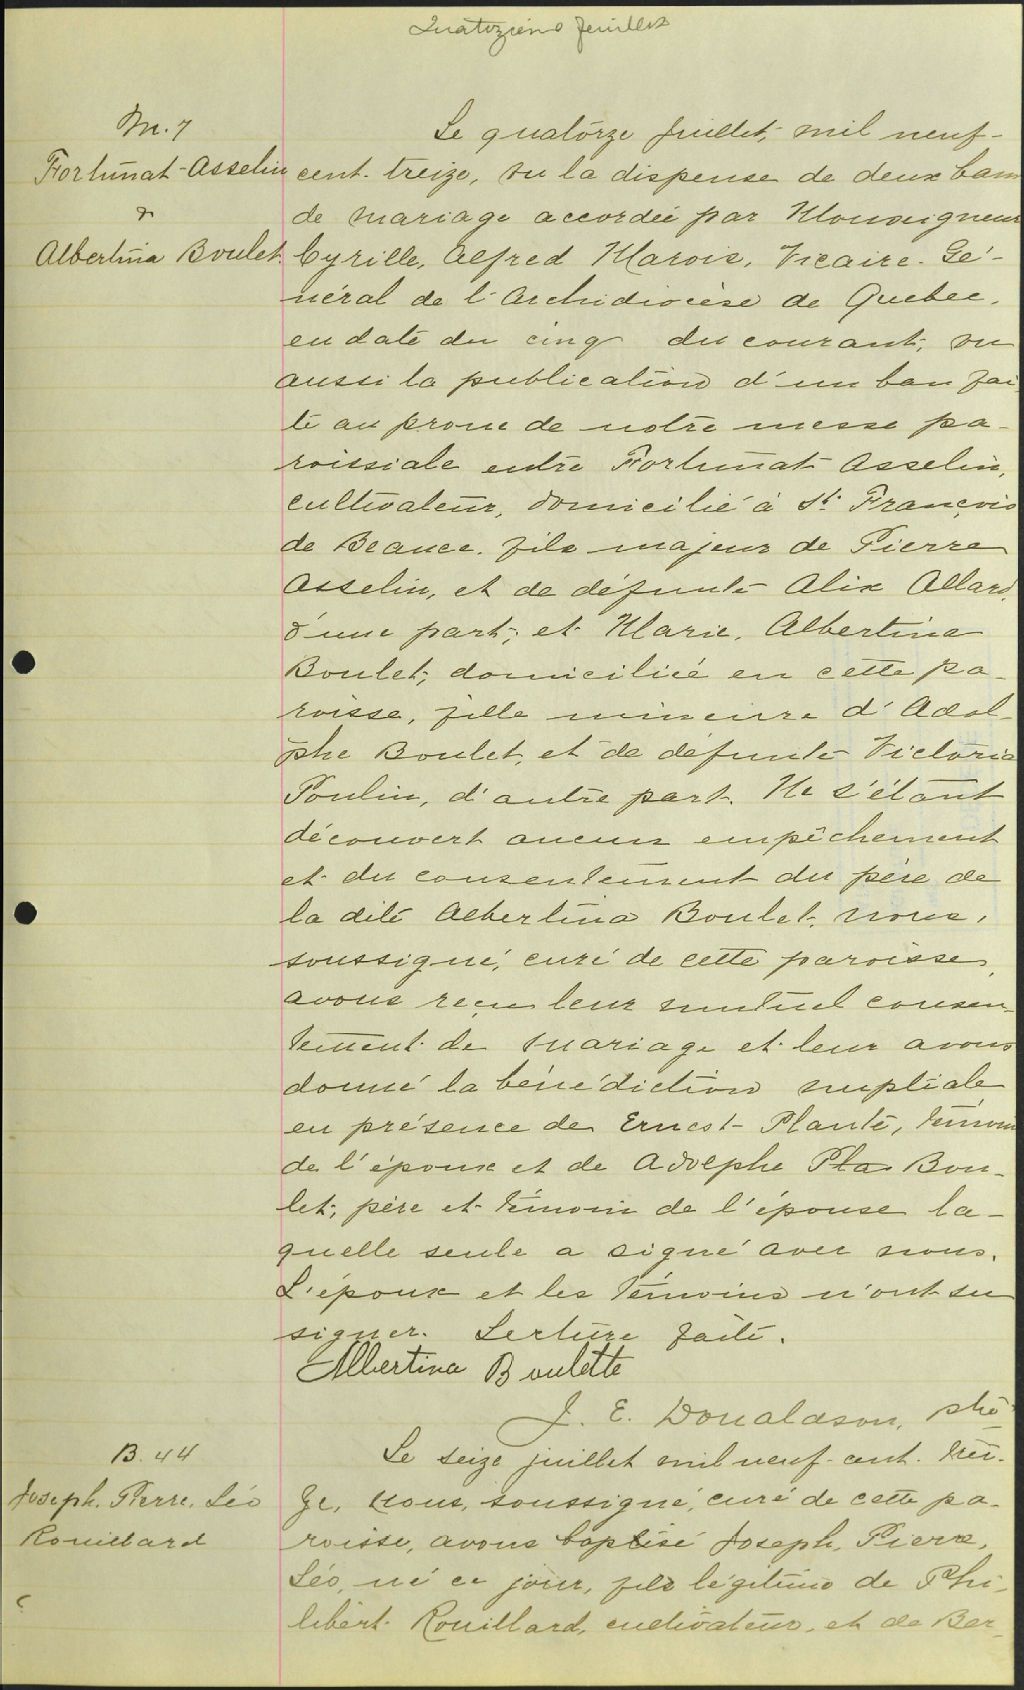 Quatorzième feuillet
M. 7
Fortunat Asselin
&
Albertina Boulet.
Le quatorze juillet, mil neuf-
cent treize, vu la dispense de deux bans
de mariage accordée par Monseigneur
Cyrille, Alfred Marois, Vicaire-Gé-
néral de l'Archidiocèse de Quebec,
en date du cinq du courant, vu
aussi la publication d'un ban fai-
te au prone de notre messe pa-
roissiale entre Fortunat Asselin,
cultivateur, domicilié à St. François
de Beauce, fils majeur de Pierre
Asselin, et de défunte Alix Allard,
d'une part; et Marie, Albertina
Boulet, domiciliée en cette pa-
roisse, fille mineure d'Adol-
phe Boulet, et de défunte Victoria
Poulin, d'autre part. Ne s'étant
découvert aucun empêchement
et du consentement du père de
la dite Albertina Boulet, nous,
soussigné, curé de cette paroisse,
avons reçu leur mutuel consen-
tement de mariage et leur avons
donné la bénédiction nuptiale
en présence de Ernest Plante, témoin
de l'époux et de Adolphe Pla Bou-
let, père et témoin de l'épouse la-
quelle seule a signé avec nous.
L'époux et les témoins n'ont su
signer. Lecture faite.
Albertina Boulette
J. E. Donaldson, ptre
B. 44
Joseph, Pierre, Léo
Rouillard
Le seize juillet mil neuf-cent-trei-
ze, nous, soussigné, curé de cette pa-
roisse, avons baptisé Joseph, Pierre,
Léo, né ce jour, fils légitime de Phi-
libert Rouillard, cultivateur, et de Ber-